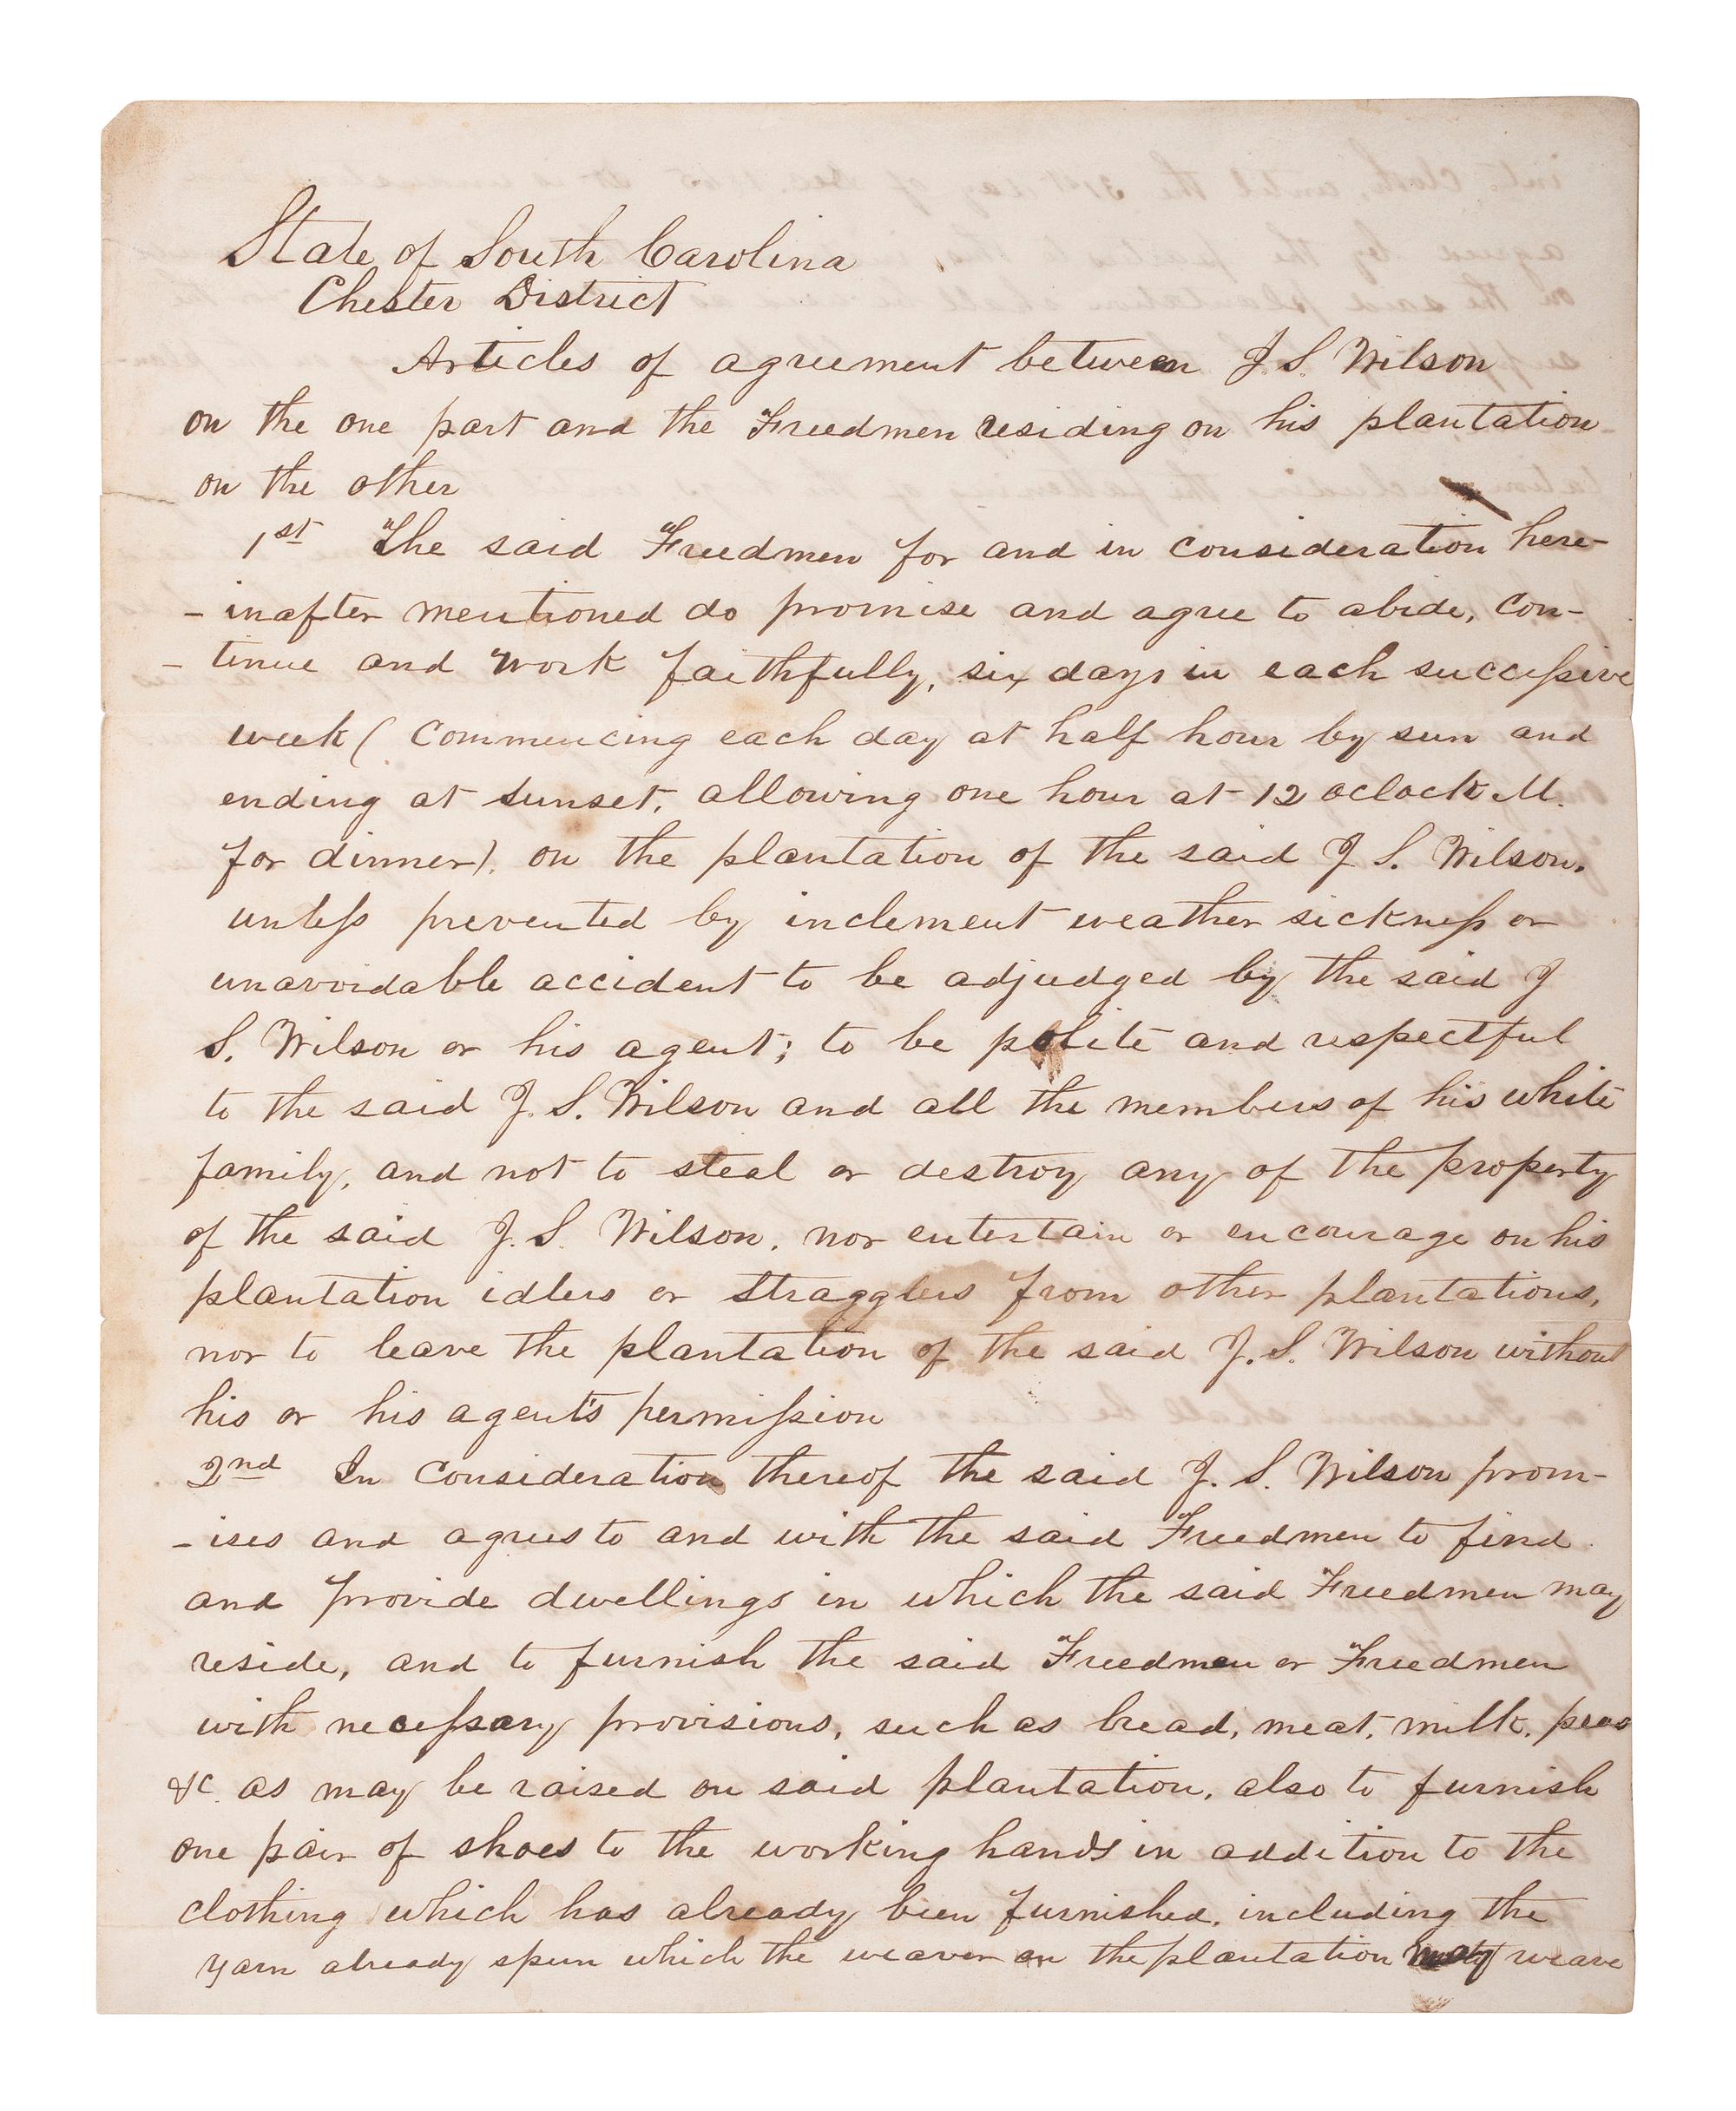 State of South Carolina
Chester District
Articles of agreement between J. S. Wilson
on the one part and the Freedmen residing on his plantation
on the other
1st The said Freedmen for and in consideration here-
- inafter mentioned do promise and agree to abide, con-
- tinue and work faithfully, six days in each succeſsive
week ( Commencing each day at half hour by sun and
ending at sunset, allowing one hour at 12 oclock M.
for dinner). on the plantation of the said J S. Wilson.
unleſs prevented by inclement weather sickneſs or
unavoidable accident to be adjudged by the said J
S. Wilson or his agent; to be polite and respectful
to the said J. S. Wilson and all the members of his white
family, and not to steal or destroy any of the property
of the said J. S. Wilson, nor entertain or encourage on his
plantation idlers or stragglers from other plantations,
nor to leave the plantation of the said J. S. Wilson without
his or his agent's permiſsion
2nd In Consideration thereof the said J. S. Wilson prom-
- ises and agrees to and with the said Freedmen to find
and provide dwellings in which the said Freedmen may
reside, and to furnish the said Freedmen or Freedmen
with neceſsary provisions, such as bread, meat, milk, peas
&c. as may be raised on said plantation, also to furnish
one pair of shoes to the working hands in addition to the
clothing which has already been furnished, including the
yarn already spun which the weaver on the plantation may weave